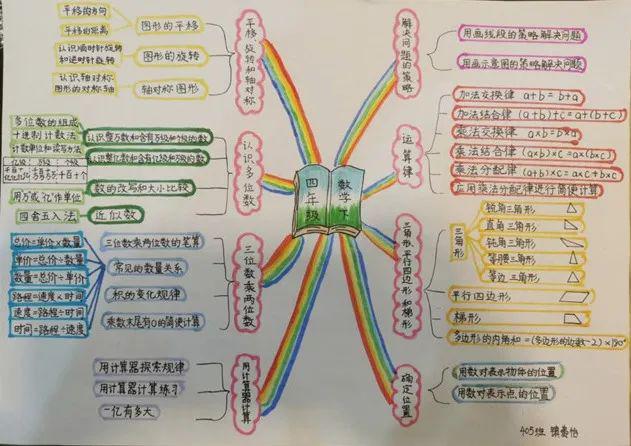 四年级
数学下
平移、旋转和轴对称
图形的平移
平移的方向
平移的距离
图形的旋转
认识顺时针旋转
和逆时针旋转
轴对称图形
认识轴对称
图形的对称轴
认识多位数
认识整万数和含有万级和个级的数
认识整亿数和含有亿级和万级的数
多位数的组成
十进制计数法
计数单位和读写方法
亿级 万级 个级
数的改写和大小比较
用"万"或"亿"作单位
近似数
四舍五入法
三位数乘两位数
三位数乘两位数的笔算
常见的数量关系
积的变化规律
乘数末尾有0的简便计算
总价=单价×数量
单价=总价÷数量
数量=总价÷单价
路程=速度×时间
速度=路程÷时间
时间=路程÷速度
用计算器计算
用计算器探索规律
用计算器计算练习
一亿有多大
解决问题的策略
用画线段的策略解决问题
用画示意图的策略解决问题
运算律
加法交换律 a+b=b+a
加法结合律 (a+b)+c=a+(b+c)
乘法交换律 a×b=b×a
乘法结合律 (a×b)×c=a×(b×c)
乘法分配律 (a+b)×c=a×c+b×c
应用乘法分配律进行简便计算
三角形、平行四边形和梯形
三角形
锐角三角形
直角三角形
钝角三角形
等腰三角形
等边三角形
平行四边形
梯形
多边形的内角和=(多边形的边数-2)×180°
确定位置
用数对表示物体的位置
用数对表示点的位置
405班